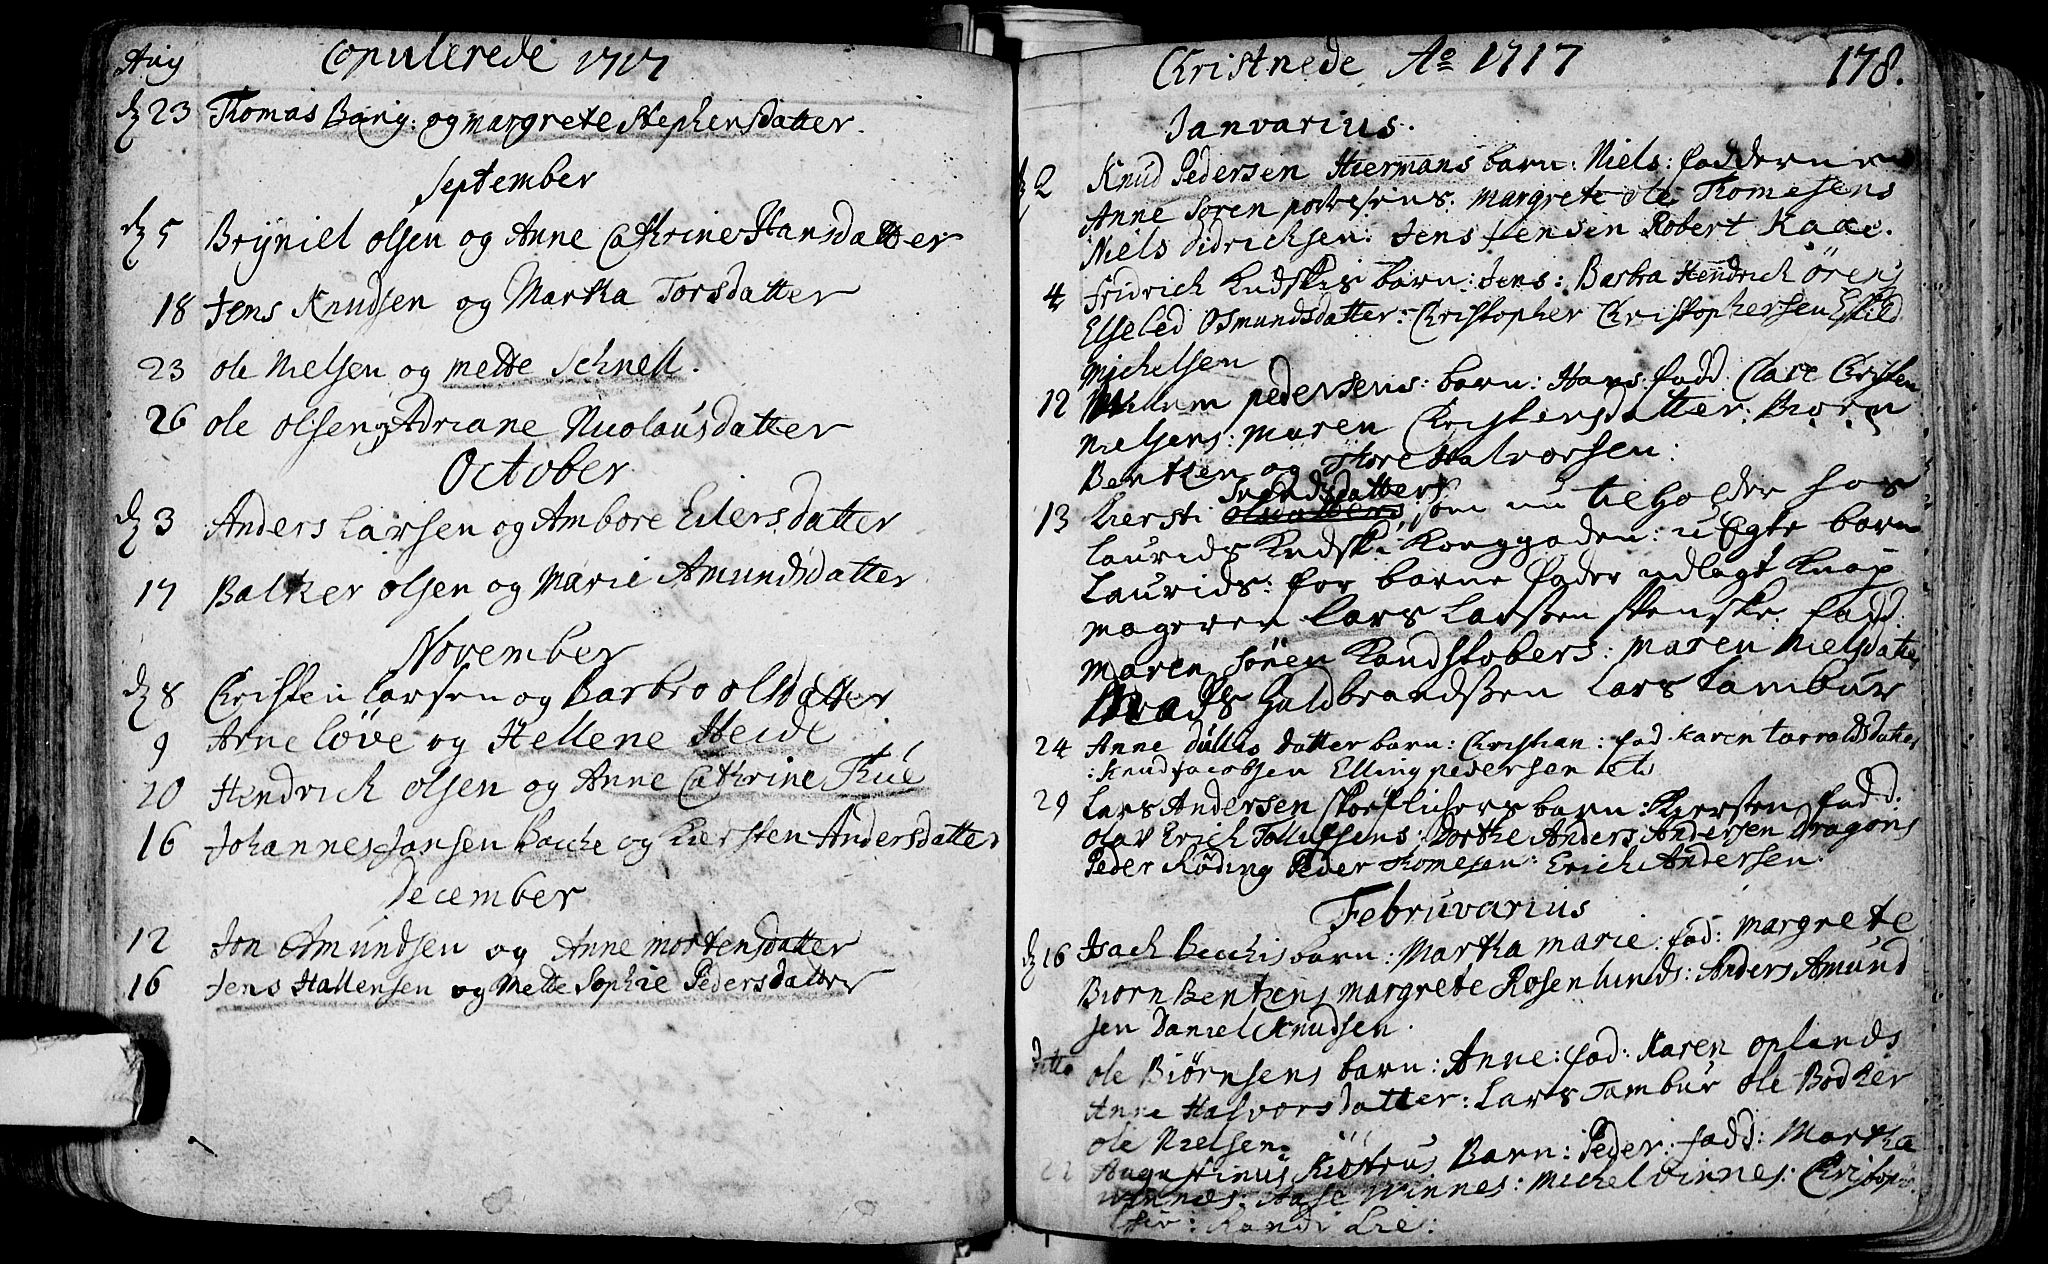 Aug
Copulerede 1717
d 23 Thomas Bang: og Margrete Stephensdatter.
September
d 5 Bryniel Olsen og Anne Cathrine Hansdatter
18 Jens Knudsen og Martha Torsdatter
23 ole Nielsen og mette Schnell.
26 ole olsen og Adriane Nicolausdatter
October
d 3 Anders Larsen og Ambore Eilersdatter
17 Balker olsen og Marie Amundsdatter
November
d 8 Christen Larsen og Barbro olsdatter
9 Arne Løve og Hellene Heide
10 Hendrich olsen og Anne Cathrine Thue
16 Johannes Jansen Bache og Kiersten Andersdatter
December
12 Jon Amundsen og Anne mortensdatter
16 Jens Hallensen og Mette Sophie Pedersdatter
Christnede Ao 1717 178.
Ianvarius.
d 2 Knud Pedersen Hiermans barn: Niels: fadderne
Anne Sören: Margrete ole Thomesens
Niels Didrichsen: Jens Jensen Robert Kaae.
4 Fridrich Kudskis barn: Jens: Barbra Hendrich
Elseled Osmundsdatter: Christopher Christophersen Eskild
Michelsen
12 Pedersens: barn: Hans: fadd: Christen
Nielsens: maren Christensdatter: Biørn
Bentzen og Thore Halvorsen:
Svendsdatters
13 Kiersti olsdatters som nu tilholder hos
Laurids Kudsk i Konggaden: uEgte barn
Laurids: for barne fader udlagt Knap
mageren Lars Larssen Svenske. fadd:
maren Sören Kandstobers: maren Nielsdatter
Mads Guldbrandssen Lars Tambur
24 Anne datter barn: Christian: fad: Karen Torvaldsdatter
: Knud Jacobsen Elling Pedersen etc
29 Lars Andersen barn: Kiersten fadd:
Olav Erich Tollefsens: Dorthe Anders Andersen Dragons
Peder Röding Peder Thomesen: Erich Andersen.
Februvarius
d 16 Isach Becchis barn: Martha marie: fad: Margrete
Biorn Bentzens Margrete Rosenlunds: Anders Amund
sen Daniel Knudsen.
Ditto ole Biørnsens barn: Anne: fad: Karen oplands
Anne Halvorsdatter: Lars Tambur Ole Bødker
ole Nielsen.
Augustinus Barn: Peder: fadd: Martha
Winnes: Aase Winnes: Michel Vinnes:
Randi Lie: